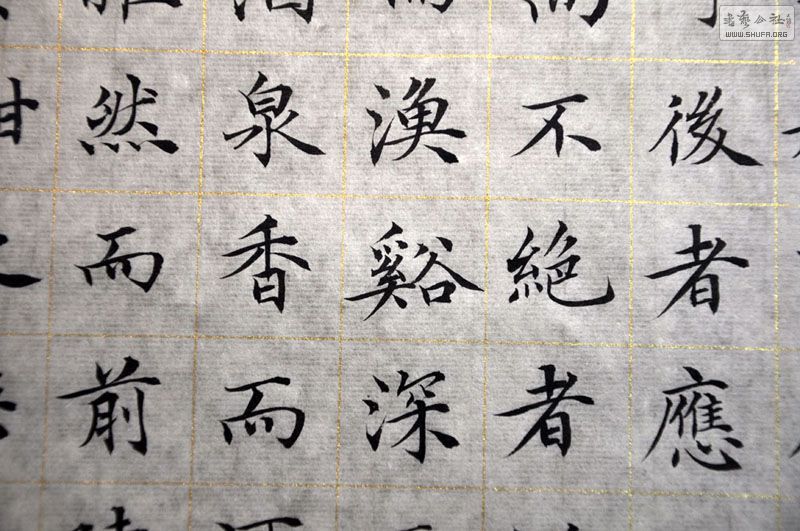 後者應
不絕者
漁谿深
泉香而
然而前
書藝公社
WWW.SHUFA.ORG